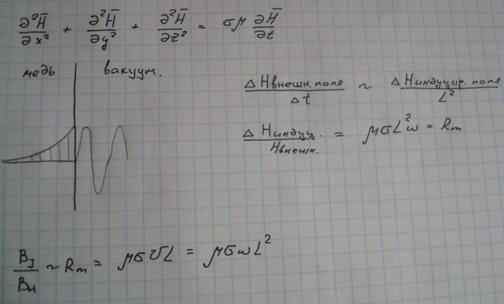 ∂²H̅/∂x² + ∂²H̅/∂y² + ∂²H̅/∂z² = σμ ∂H̅/∂t
медь вакуум.
ΔHвнешн. поля/Δt ~ ΔHиндуцир. поля/L²
ΔHиндуц./Hвнешн. = μσL²ω = Rm
BJ/Bн ~ Rm = μσVL = μσωL²